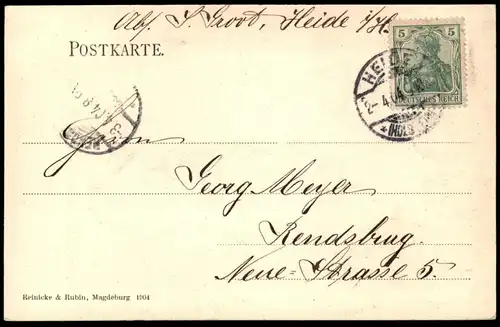 Abs. J. Groot, Heide i/H.
POSTKARTE.
5 5
DEUTSCHES REICH
HEIDE
2-4.04
(HOLSTEIN)
Herrn
Georg Meyer
Rendsbrug.
Neue-Strasse 5.
Reinicke & Rubin, Magdeburg 1904